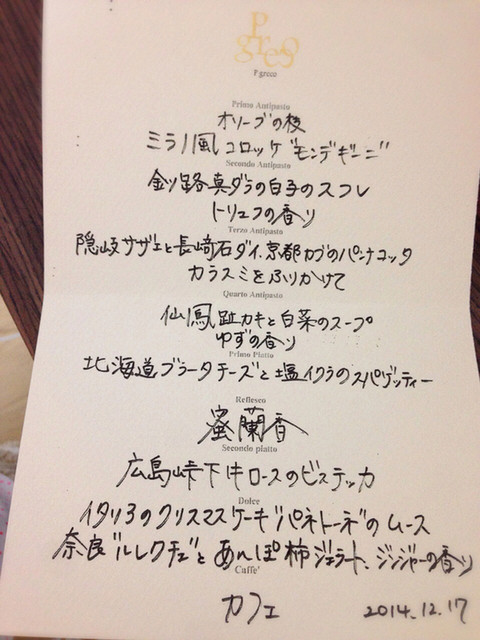 P greco
P greco
Primo Antipasto
オリーブの枝
ミラノ風コロッケ"モンデギーニ"
Secondo Antipasto
釧路真ダラの白子のスフレ
トリュフの香り
Terzo Antipasto
隠岐サザエと長崎石ダイ、京都カブのパンナコッタ
カラスミをふりかけて
Quarto Antipasto
仙鳳趾カキと白菜のスープ
ゆずの香り
Primo Piatto
北海道ブラータチーズと塩イクラのスパゲッティー
Reflesco
蜜蘭香
Secondo piatto
広島峠下牛ロースのビステッカ
Dolce
イタリアのクリスマスケーキ"パネトーネ"のムース
奈良"ルレクチェ"とあんぽ柿ジェラート、ジンジャーの香り
Caffe'
カフェ 2014.12.17